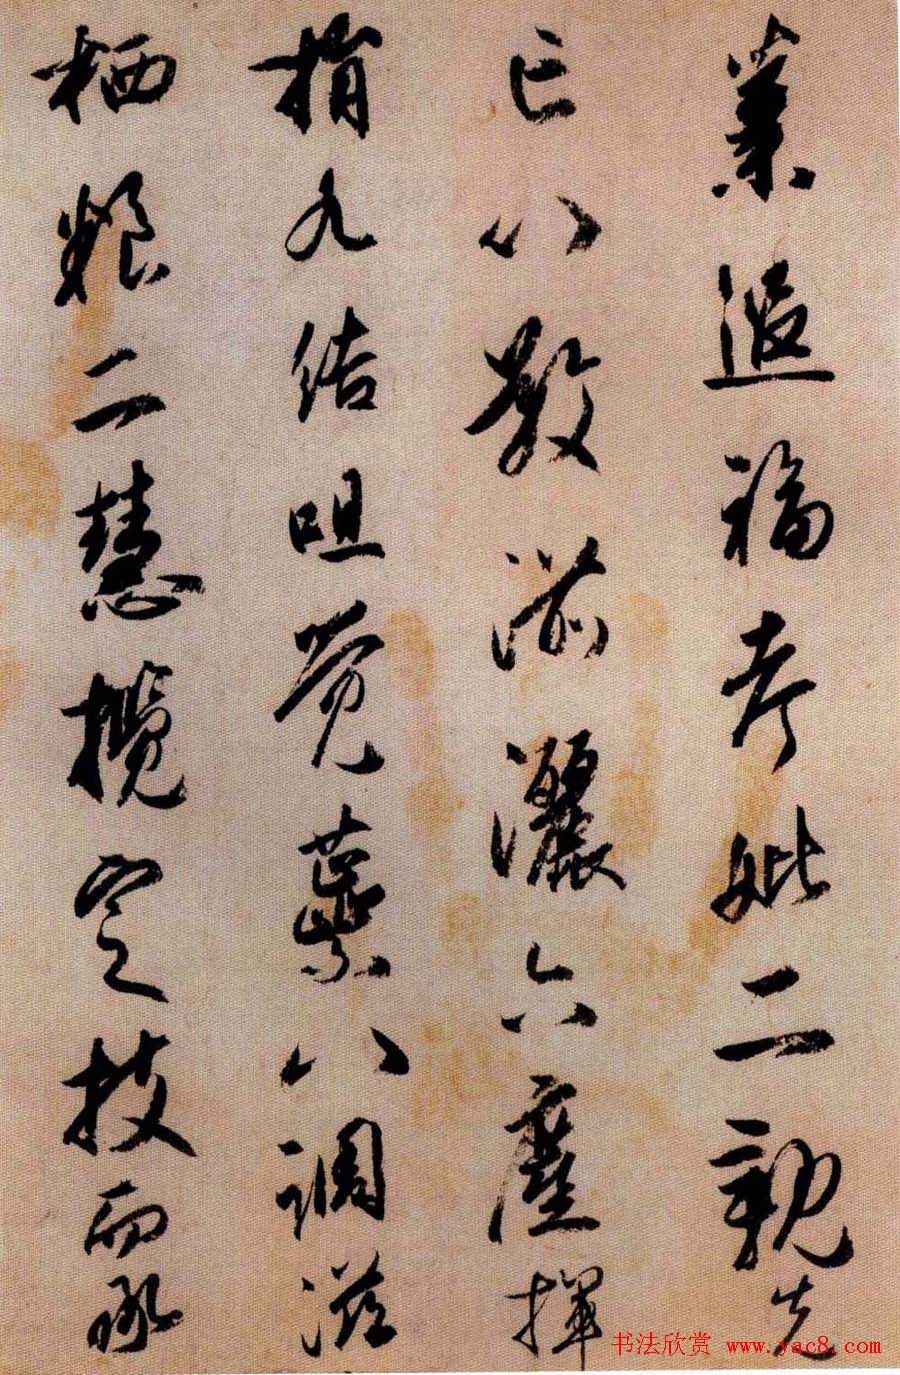 業追福考妣二親先
亡以教滌灑六塵揮
捐九結咀覺蘂以調滋
栖糧二慧攬定枝而承
书法欣赏 www.yac8.com